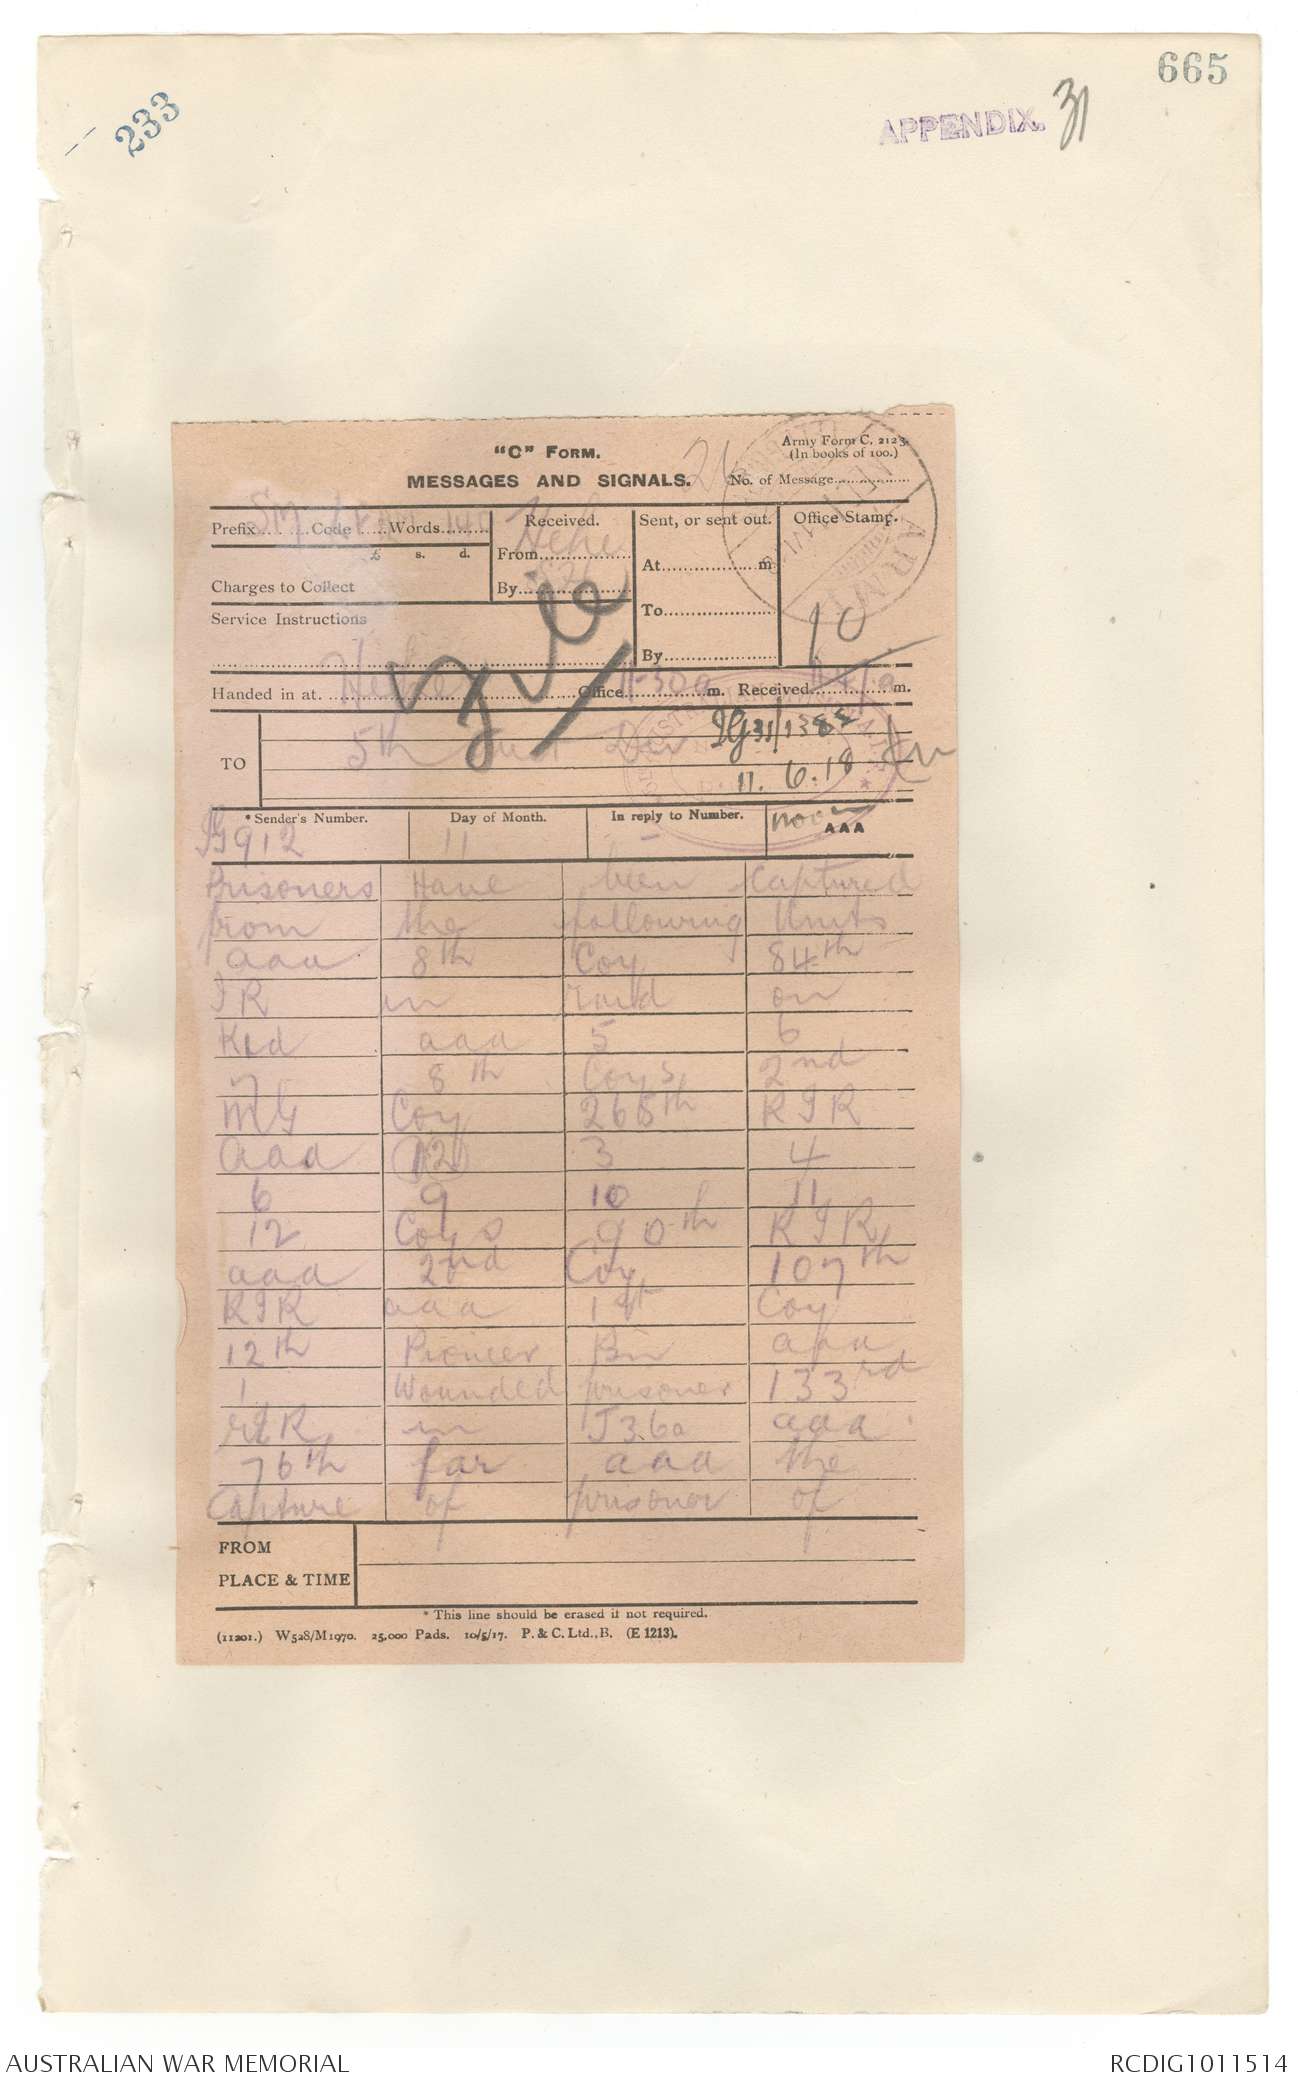 665
233
APPENDIX. 31
"C" FORM.
MESSAGES AND SIGNALS.
Army Form C. 2123.
(In books of 100.)
No. of Message
Prefix SM Code Words
Received.
From
By
Sent, or sent out.
At m
To
By
Office Stamp.
£ s. d.
Charges to Collect
Service Instructions
10
Handed in at Office 11-30a m. Received m.
TO
5th Aust Div
IG 31/1388
11.6.18
*Sender's Number. Day of Month. In reply to Number. noon AAA
IG912 11 -
Prisoners Have been Captured
from the following Units
aaa 8th Coy 84th
IR in raid on
Kid aaa 5 6
7 8th Coys 2nd
MG Coy 265th RIR
aaa 12 3 4
6 9 10 11
12 Coys 90th RIR
aaa 2nd Coy 107th
RIR aaa 1st Coy
12th Pioneer Bn aaa
1 Wounded prisoner 133rd
RIR in J36a aaa
76th far aaa the
Capture of prisoner of
FROM
PLACE & TIME
* This line should be erased if not required.
(11201.) W528/M1970. 25,000 Pads. 10/5/17. P. & C. Ltd., B. (E 1213).
AUSTRALIAN WAR MEMORIAL
RCDIG1011514